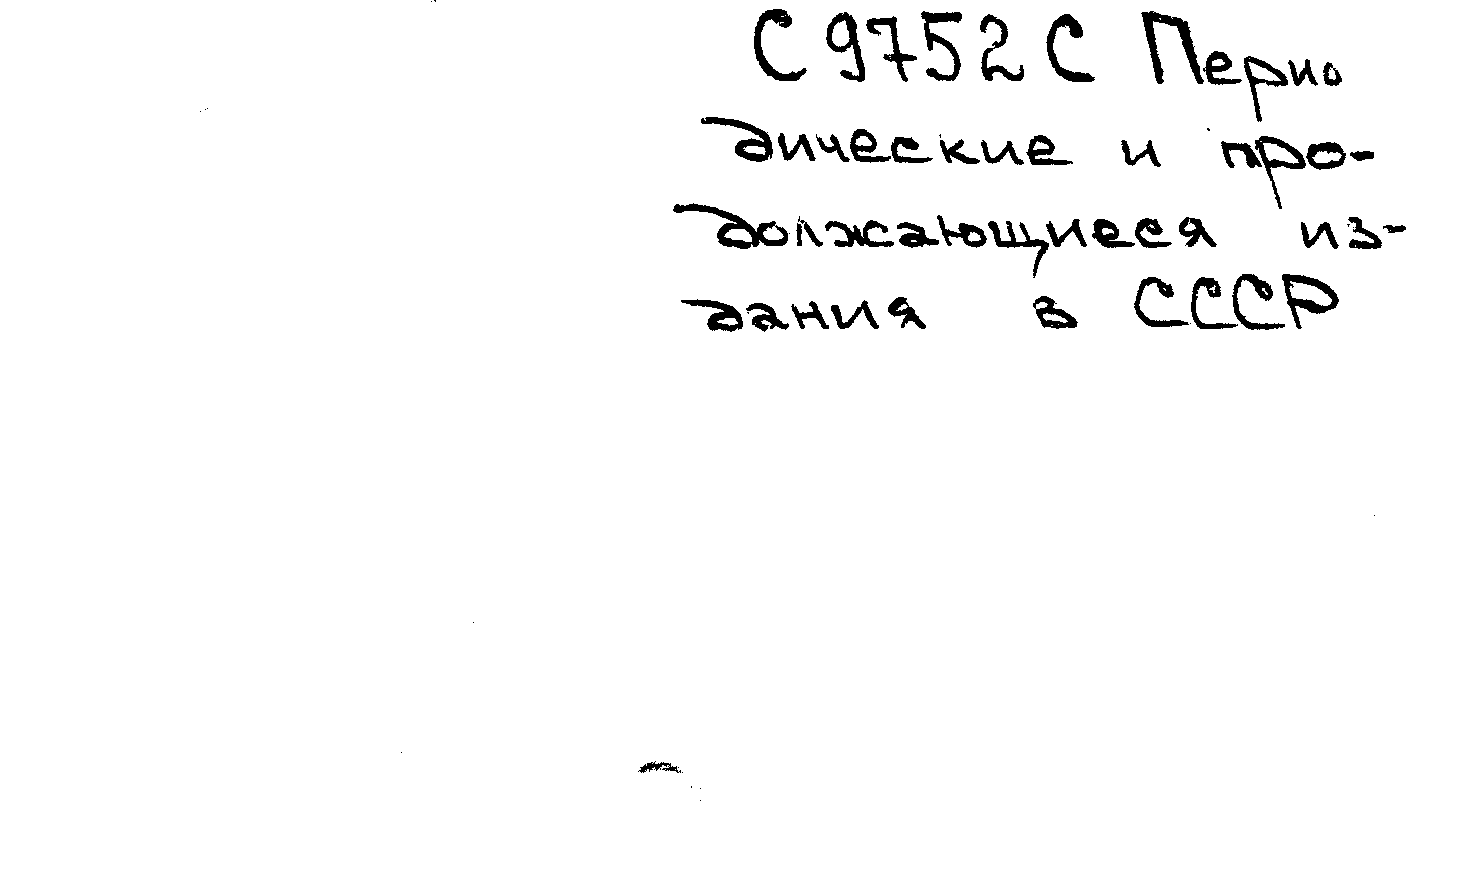 С9752С Перио
дические и про-
должающиеся из-
дания в СССР